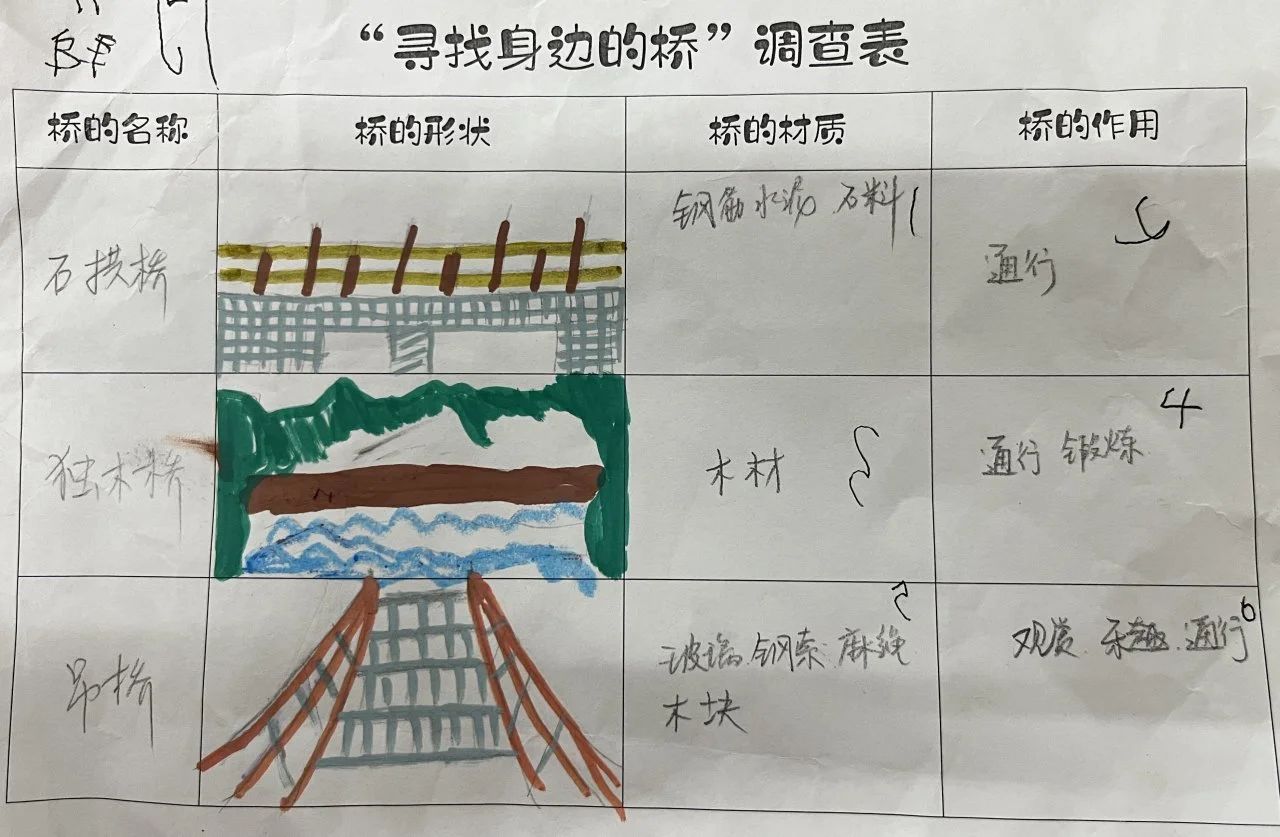 “寻找身边的桥”调查表
桥的名称 桥的形状 桥的材质 桥的作用
石拱桥 钢筋 水泥 石料 1 通行
独木桥 木材 通行 锻炼 4
吊桥 玻璃 钢索 麻绳 观赏 乐趣 通行 6
木块